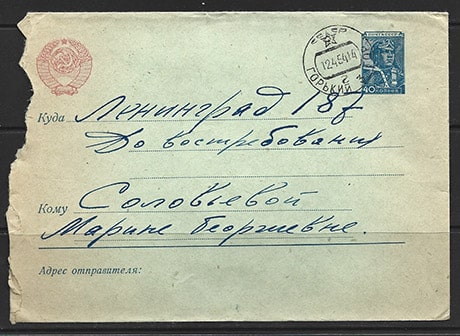 12.4.54.14
ГОРЬКИЙ
40 КОПЕЕК
Куда Ленинград 187
До востребования
Кому Соловьевой
Марине Георгиевне.
Адрес отправителя: